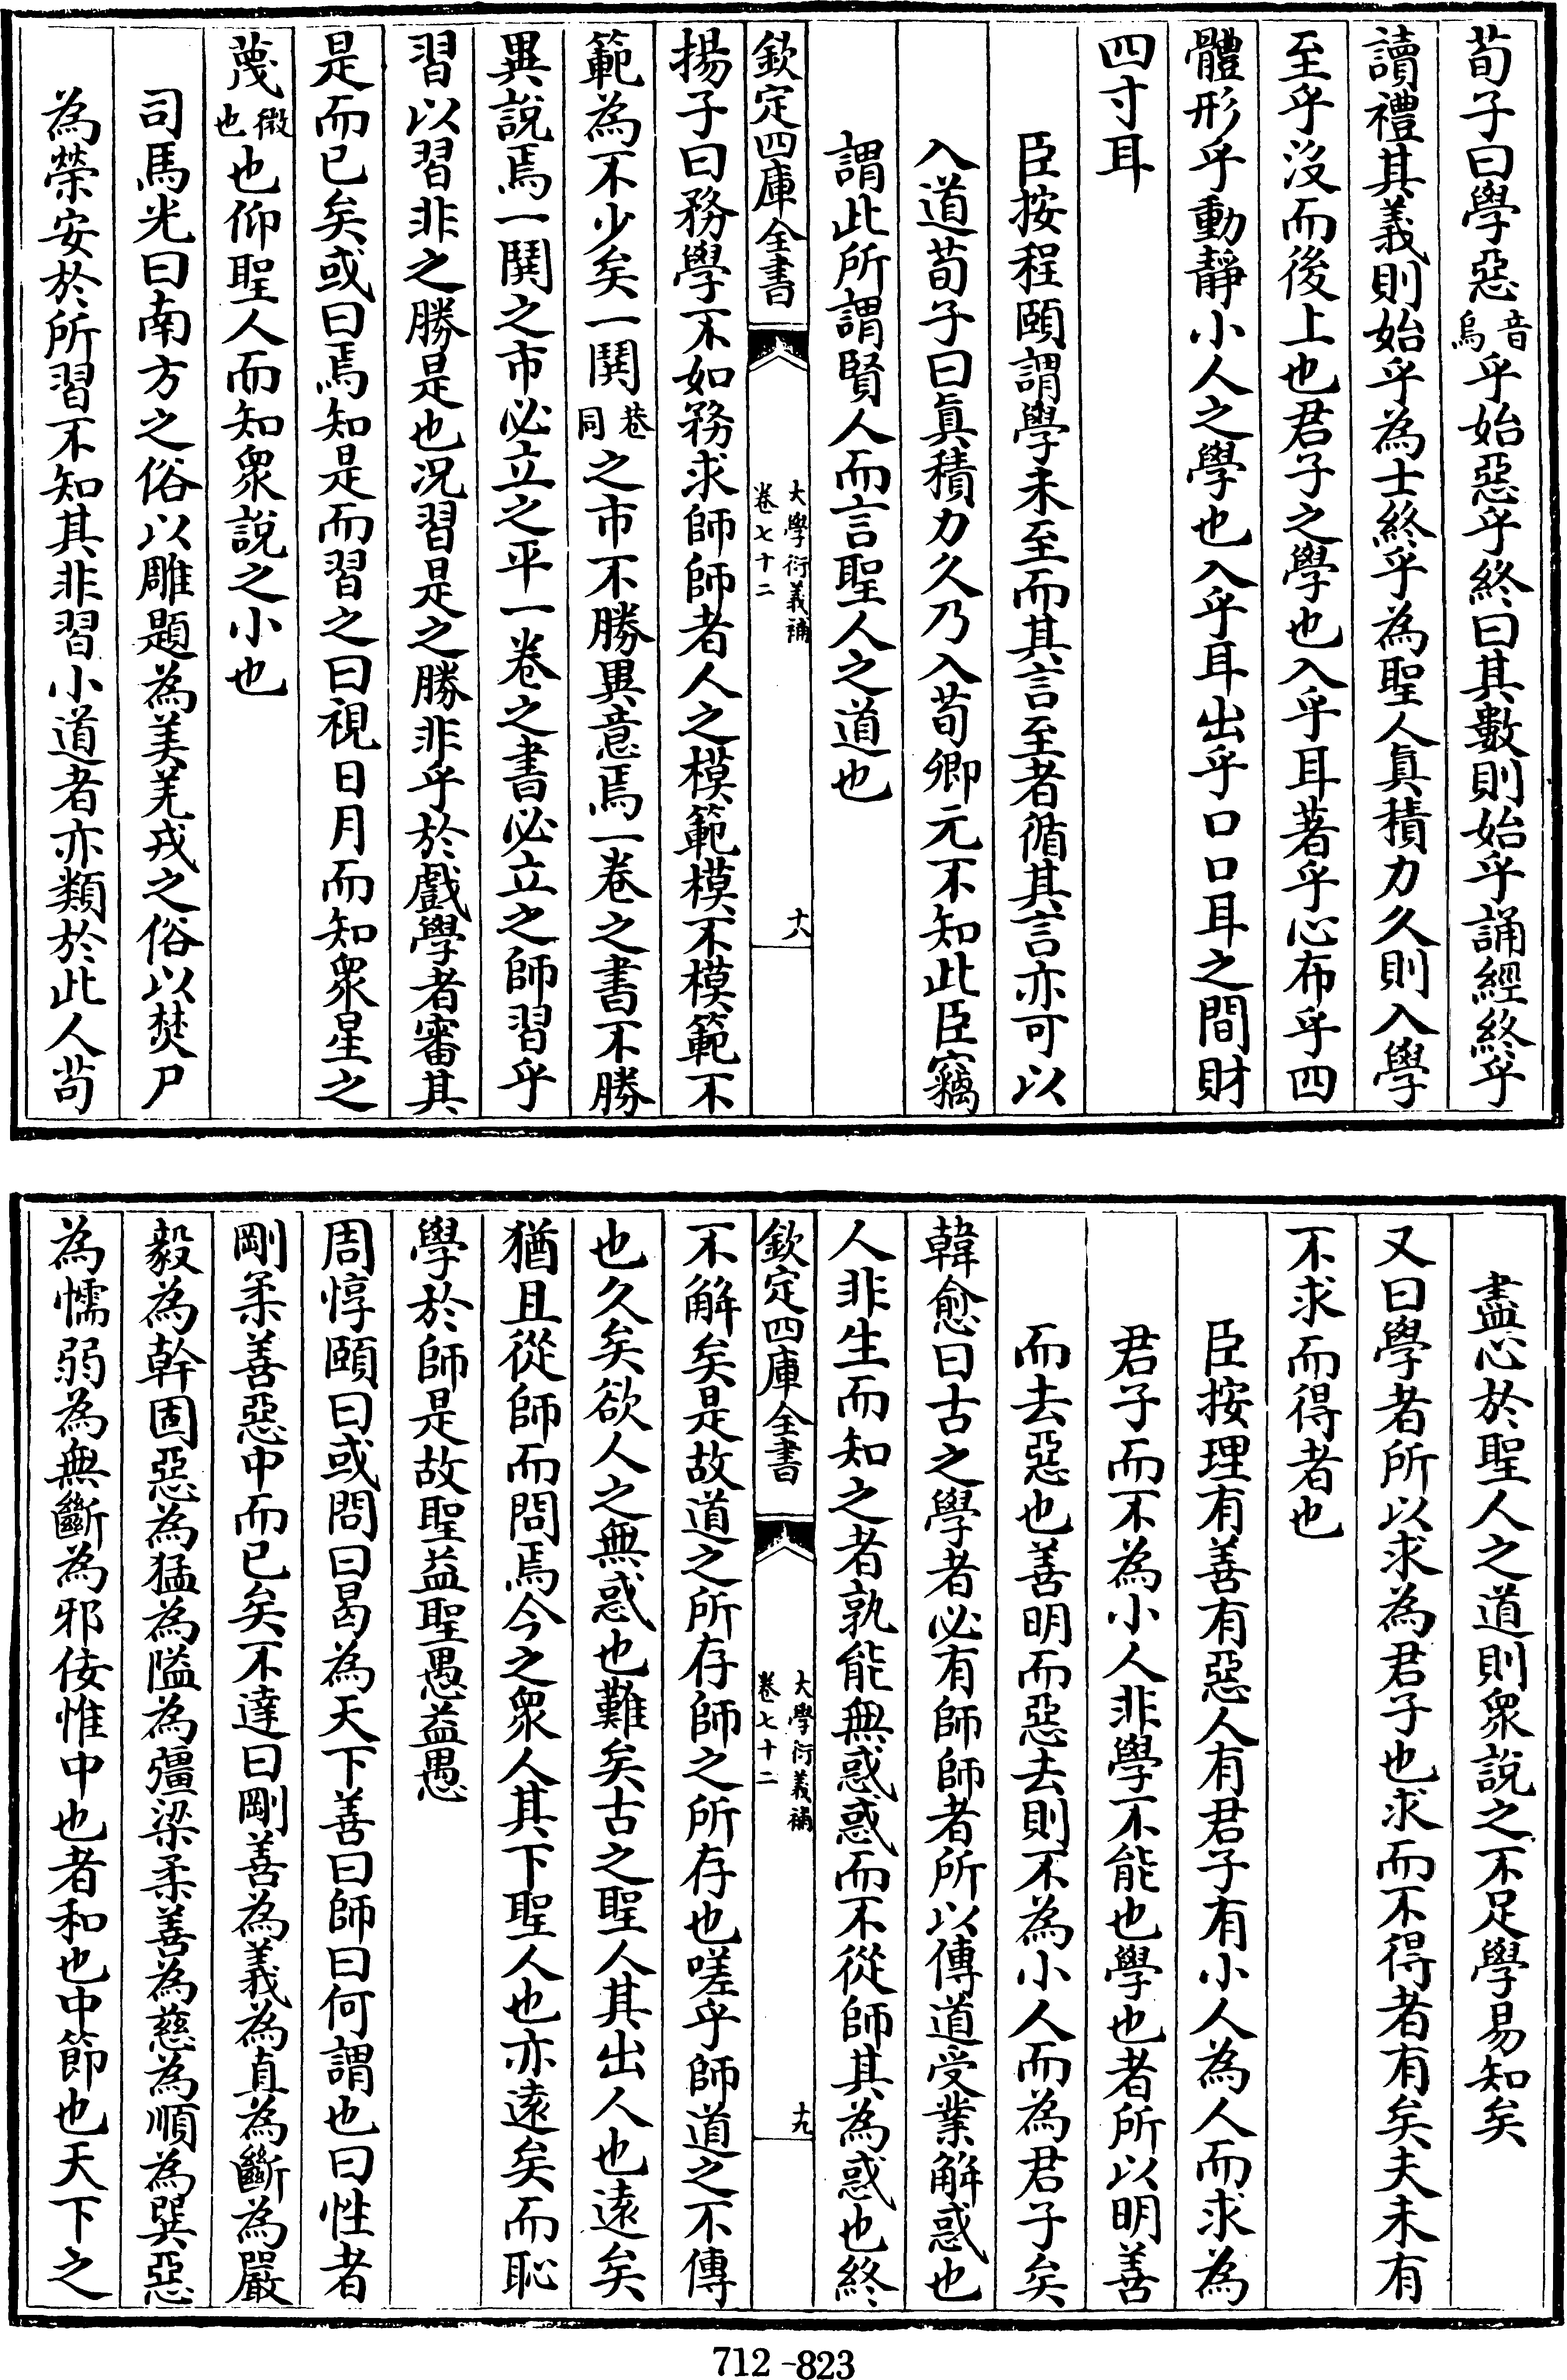 荀子曰學惡音烏乎始惡乎終曰其數則始乎誦經終乎
讀禮其義則始乎為士終乎為聖人真積力久則入學
至乎沒而後上也君子之學也入乎耳著乎心布乎四
體形乎動靜小人之學也入乎耳出乎口口耳之間財
四寸耳
臣按程頤謂學未至而其言至者循其言亦可以
入道荀子曰真積力久乃入荀卿元不知此臣竊
謂此所謂賢人而言聖人之道也
欽定四庫全書 大學衍義補 卷七十二 十八
揚子曰務學不如務求師師者人之模範模不模範不
範為不少矣一閧巷同之市不勝異意焉一卷之書不勝
異說焉一閧之市必立之平一卷之書必立之師習乎
習以習非之勝是也况習是之勝非乎於戲學者審其
是而已矣或曰焉知是而習之曰視日月而知衆星之
蔑微也也仰聖人而知衆說之小也
司馬光曰南方之俗以雕題為美羌戎之俗以焚尸
為榮安於所習不知其非習小道者亦類於此人苟
盡心於聖人之道則衆說之不足學易知矣
又曰學者所以求為君子也求而不得者有矣夫未有
不求而得者也
臣按理有善有惡人有君子有小人為人而求為
君子而不為小人非學不能也學也者所以明善
而去惡也善明而惡去則不為小人而為君子矣
韓愈曰古之學者必有師師者所以傳道受業解惑也
人非生而知之者孰能無惑惑而不從師其為惑也終
欽定四庫全書 大學衍義補 卷七十二 十九
不解矣是故道之所存師之所存也嗟乎師道之不傳
也久矣欲人之無惑也難矣古之聖人其出人也遠矣
猶且從師而問焉今之衆人其下聖人也亦遠矣而恥
學於師是故聖益聖愚益愚
周惇頤曰或問曰曷為天下善曰師曰何謂也曰性者
剛柔善惡中而已矣不達曰剛善為義為直為斷為嚴
毅為幹固惡為猛為隘為彊梁柔善為慈為順為巽惡
為懦弱為無斷為邪佞惟中也者和也中節也天下之
712-823